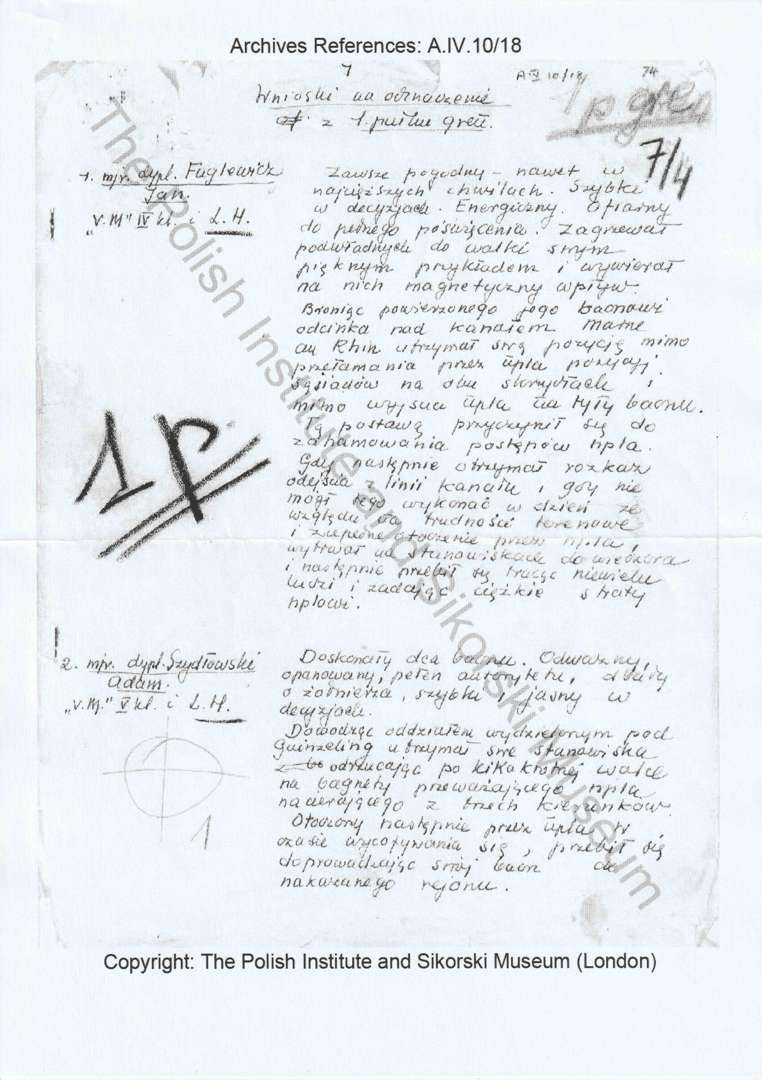 Archives References: A.IV.10/18
1
A IV 10/18
74
Wnioski na odznaczenie
z 1 pułku gren.
p gren
7/4
1. mjr. dypl. Fuglewicz
Jan.
"V.M" IV kl. i L.H.
Zawsze pogodny – nawet w
najcięższych chwilach. Szybki
w decyzjach. Energiczny. Ofiarny
do pełnego poświęcenia. Zagrzewał
podwładnych do walki swym
pięknym przykładem i wywierał
na nich magnetyczny wpływ.
Broniąc powierzonego jego baonowi
odcinka nad kanałem Marne
au Rhin utrzymał swą pozycję mimo
przełamania przez npla pozycji
sąsiadów na obu skrzydłach i
mimo wyjścia npla na tyły baonu.
Tą postawą przyczynił się do
zahamowania postępów npla.
Gdy następnie otrzymał rozkaz
odejścia z linii kanału i gdy nie
mógł tego wykonać w dzień ze
względu na trudności terenowe
i zupełne otoczenie przez npla,
wytrwał na stanowiskach do wieczora
i następnie przebił się tracąc niewielu
ludzi i zadając ciężkie straty
nplowi.
1 P
2. mjr. dypl. Szydłowski
Adam.
"V.M." V kl. i L.H.
1
Doskonały dca baonu. Odważny,
opanowany, pełen autorytetu, dbały
o żołnierza, szybki i jasny w
decyzjach.
Dowodząc oddziałem wydzielonym pod
Guinzeling utrzymał swe stanowiska
odrzucając po kilkakrotnej walce
na bagnety przeważającego npla
nacierającego z trzech kierunków.
Otoczony następnie przez npla w
czasie wycofywania się, przebił się
doprowadzając swój baon do
nakazanego rejonu.
The Polish Institute and Sikorski Museum
Copyright: The Polish Institute and Sikorski Museum (London)